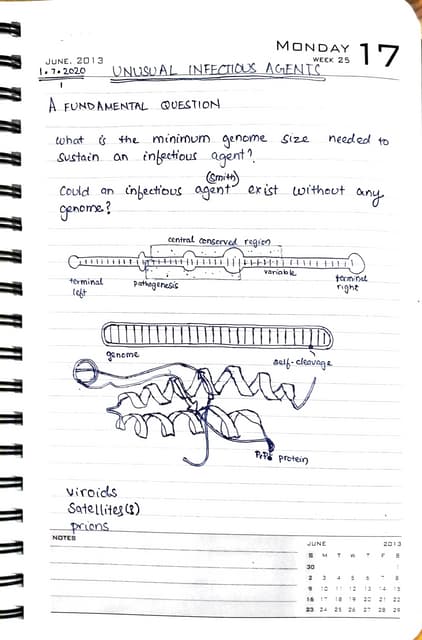 MONDAY 17
JUNE, 2013
WEEK 25
1.7.2020
UNUSUAL INFECTIOUS AGENTS
1
A FUNDAMENTAL QUESTION
What is the minimum genome size needed to
sustain an infectious agent?
(Smith)
Could an infectious agent exist without any
genome?
central conserved region
terminal
left
pathogenesis
variable
terminal
right
genome
self-cleavage
protein
viroids
Satellites(?)
prions
NOTES
JUNE 2013
S M T W T F S
30 1
2 3 4 5 6 7 8
9 10 11 12 13 14 15
16 17 18 19 20 21 22
23 24 25 26 27 28 29